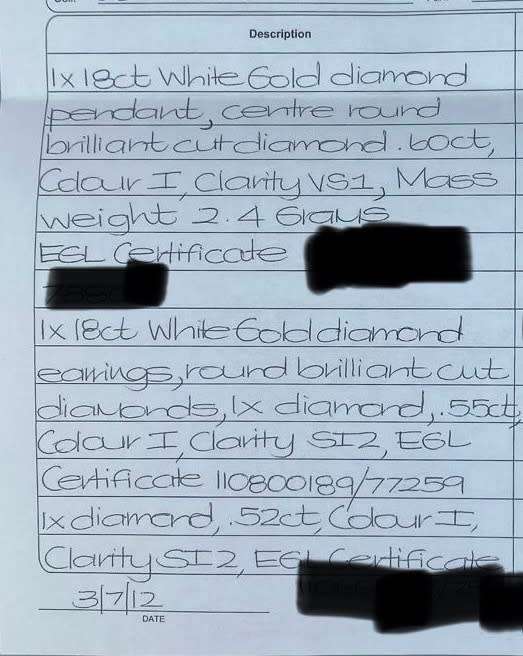 Description
1x 18ct White Gold diamond
pendant, centre round
brilliant cut diamond .60ct,
Colour I, Clarity VS1, Mass
weight 2.4 Grams
EGL Certificate
1x 18ct White Gold diamond
earrings, round brilliant cut
diamonds, 1x diamond, .55ct,
Colour I, Clarity SI2, EGL
Certificate 110800189/77259
1x diamond, .52ct, Colour I,
Clarity SI2, EGL Certificate
3/7/12
DATE